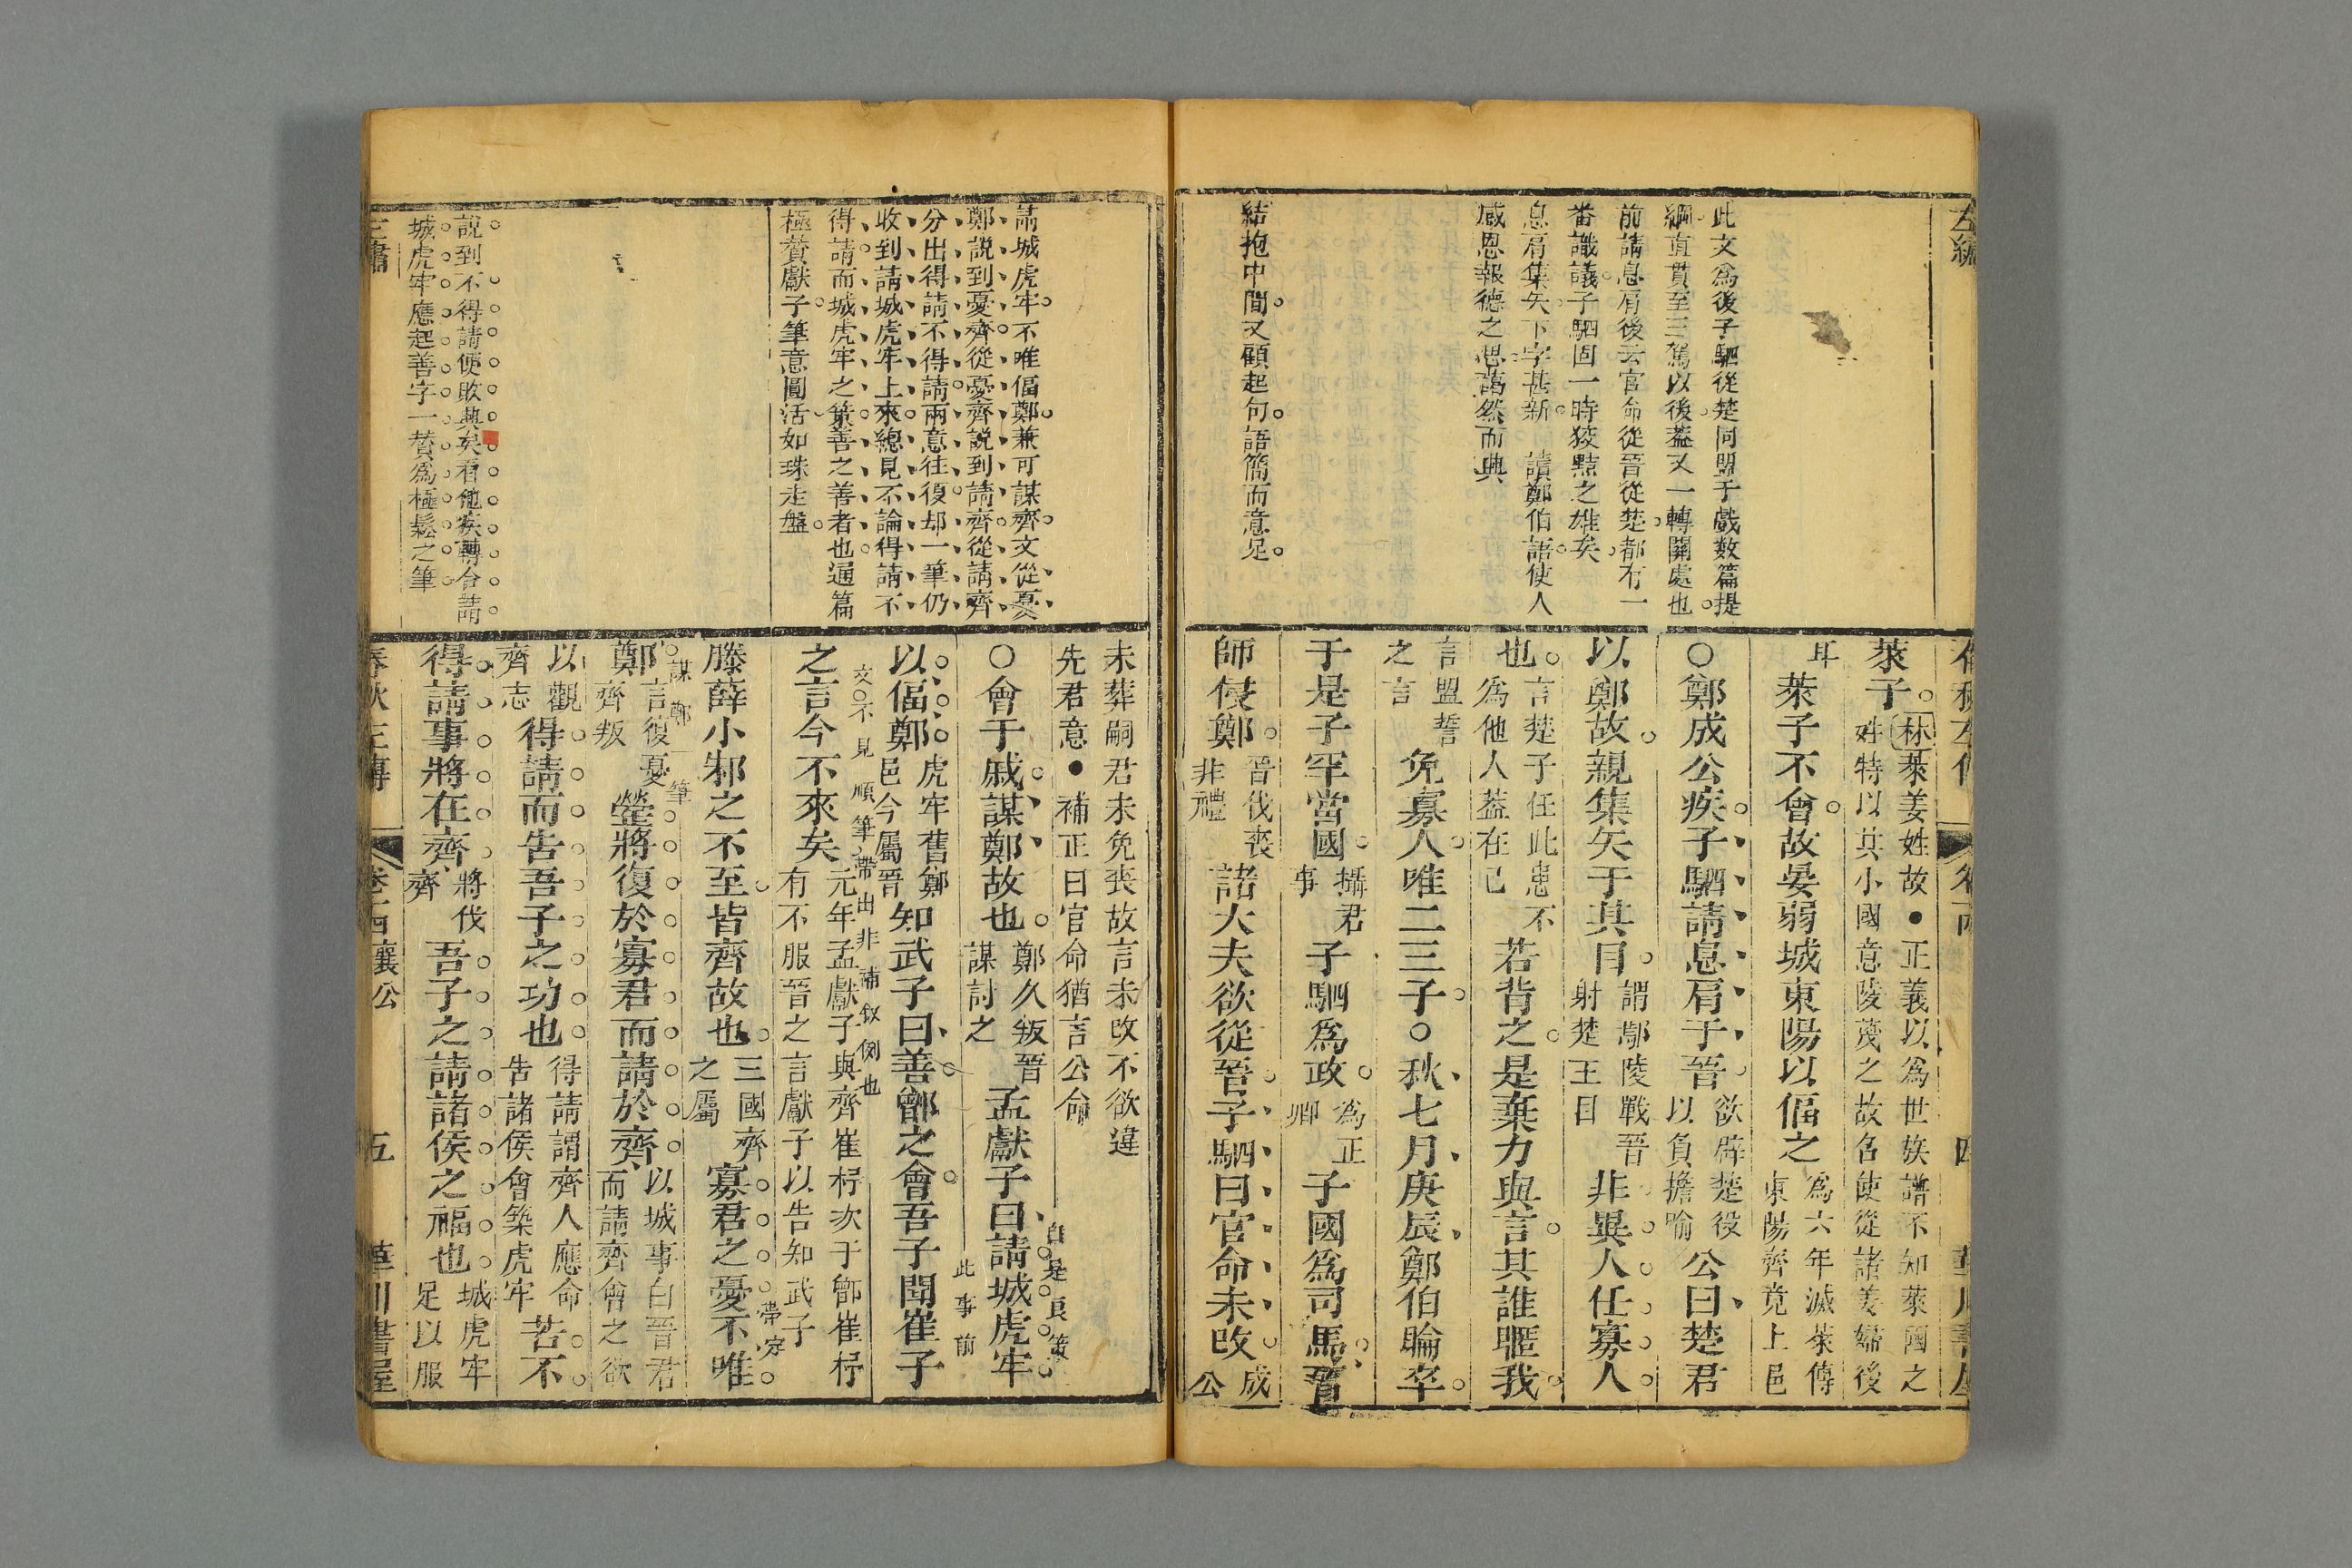 左繡
此文爲後子駟從楚同盟于戲数篇提
綱直貫至三駕以後葢又一轉關處也
前請息肩後云官命從晉從楚都有一
番議議子駟固一時狡黠之雄矣
息肩集矢下字甚新　讀鄭伯語使人
感恩報德之思藹然而典
結抱中間又顧起句語簡而意足
萊子林萊姜姓故●正義以爲世族譜不知萊國之
姓特以其小國意陵蔑之故召使從諸姜婦後
耳萊子不會故晏弱城東陽以偪之爲六年滅萊傳
東陽齊竟上邑
○鄭成公疾子駟請息肩于晉欲辟楚役
以負擔喻公曰楚君
以鄭故親集矢于其目謂鄢陵戰晉
射楚王目非異人任寡人
也言楚子任此患不
爲他人葢在己若背之是棄力與言其誰暱我
言盟誓
之言免寡人唯二三子○秋七月庚辰鄭伯睔卒
于是子罕當國攝君
事子駟爲政為正
卿子國爲司馬晉
師侵鄭晉伐喪
非禮諸大夫欲從晉子駟曰官命未改成
公
未葬嗣君未免喪故言未改不欲違
先君意●補正曰官命猶言公命
請城虎牢不唯偪鄭兼可謀齊文從憂
鄭說到憂齊從憂齊說到請齊從請齊
分出得請不得請兩意往復却一筆仍
收到請城虎牢上來總見不論得請不
得請而城虎牢之策善之善者也通篇
極贊獻子筆意圓活如珠走盤
說到不得請便敗興矣看他疾轉合請
城虎牢應起善字一贊爲極鬆之筆
○會于戚謀鄭故也鄭久叛晉
謀討之孟獻子曰請城虎牢
自是良策
以偪鄭虎牢舊鄭
邑今屬晉知武子曰善鄫之會吾子聞崔子
此事前
文○不見順筆帶出非補敘例也
之言今不來矣元年孟獻子與齊崔杼次于鄫崔杼
有不服晉之言獻子以告知武子
滕薛小邾之不至皆齊故也三國齊
之屬寡君之憂不唯
帶定
謀鄭一筆
鄭言復憂
齊叛罃將復於寡君而請於齊以城事白晉君
而請齊會之欲
以觀
齊志得請而告吾子之功也得請謂齊人應命
告諸侯會築虎牢若不
得請事將在齊將伐
齊吾子之請諸侯之福也城虎牢
足以服
春秋左傳　卷十四襄公　五　華川書屋